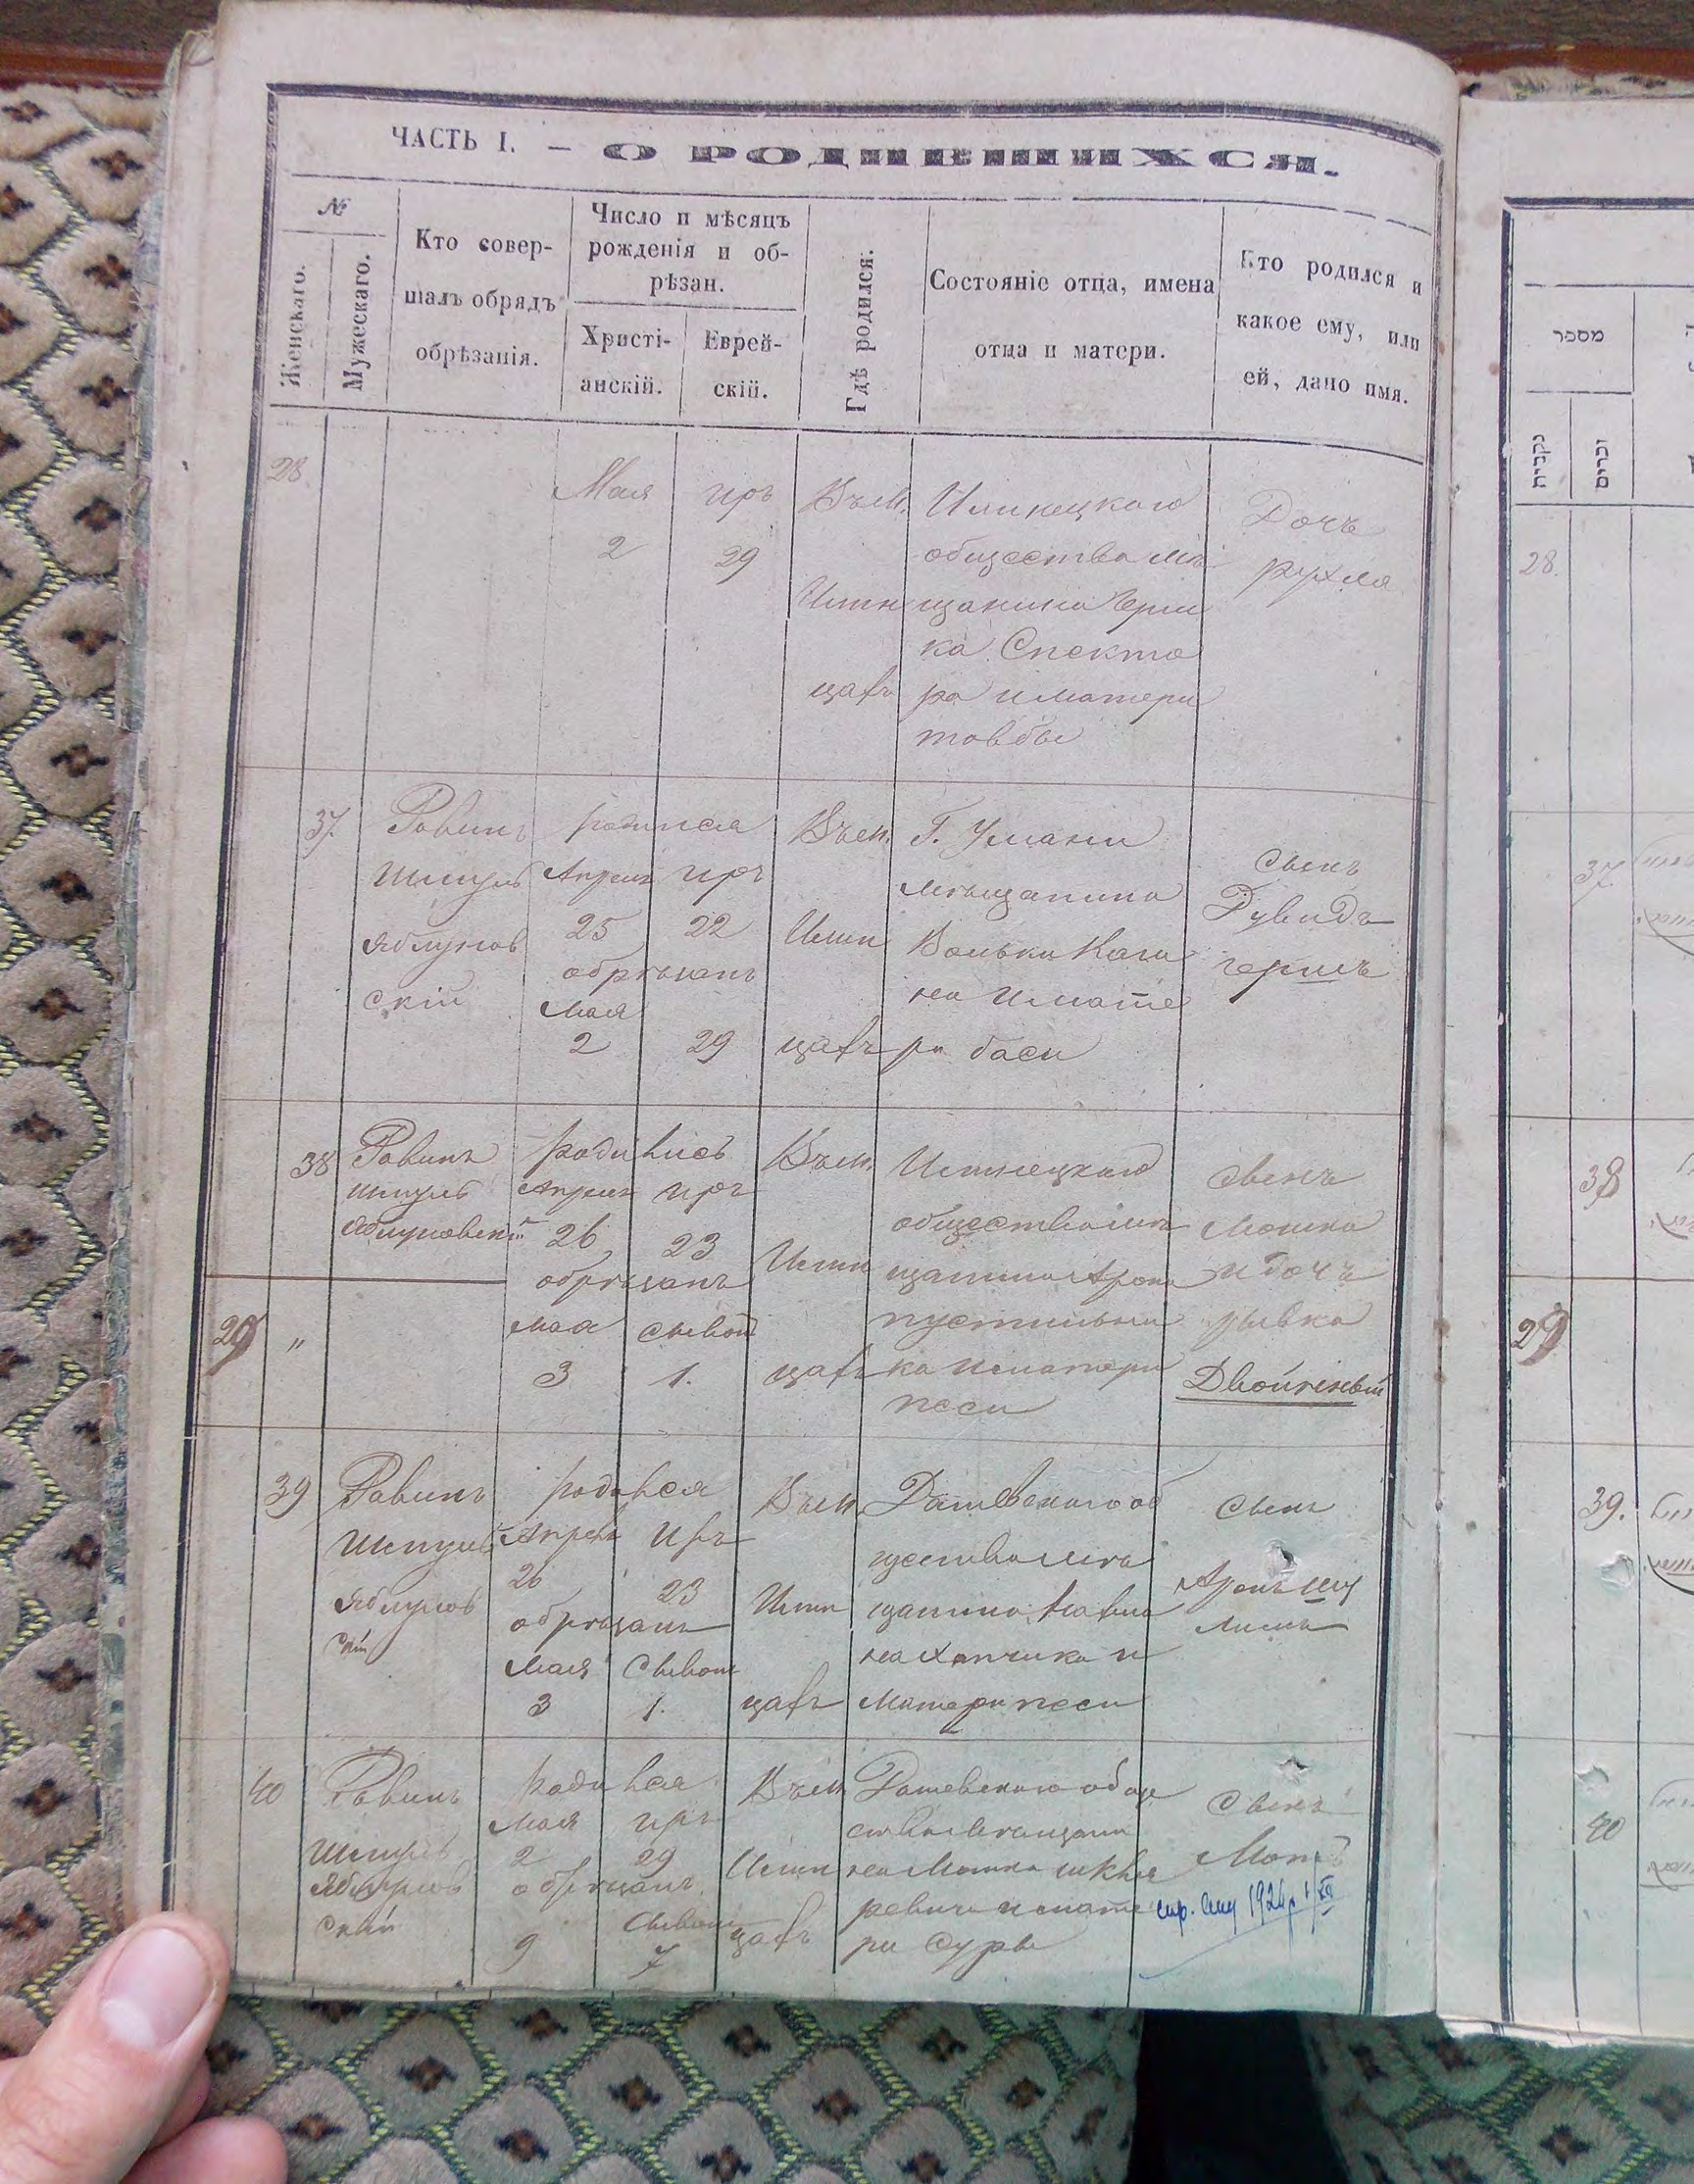 ЧАСТЬ I. — О РОДИВШИХСЯ.
№
Женскаго.
Мужескаго.
Кто совер-
шалъ обрядъ
обрѣзанія.
Число и мѣсяцъ
рожденія и об-
рѣзан.
Христі-
анскій.
Еврей-
скій.
Гдѣ родился.
Состояніе отца, имена
отца и матери.
Кто родился и
какое ему, или
ей, дано имя.
28
Мая
2
иръ
29
Въ м.
Илин
цахъ
Илинецкого
общества мѣ
щанина Герш
ка Спекто
ра и матери
товбы
Дочь
рухля
37.
Равинъ
Шмуль
Яблунов
скій
родился
Апреля иръ
25 22
обрѣзанъ
мая
2 29
Въ м.
Илин
цахъ
Г. Умани
мѣщанина
Волька Кага
на и мате
ри баси
Сынъ
Дувидъ
гершъ
38
Равинъ
шмуль
Яблуновскій
29 "
родились
Апреля иръ
26 23
обрѣзанъ
мая сывонъ
3 1.
Въ м.
Илин
цахъ
Илинецкого
общества мѣ
щанина Арона
пустильни
ка и матери
песи
Сынъ
Мошко
и дочь
рывка
Двойгиный
39
Равинъ
Шмуль
Яблунов
скій
родился
Апреля иръ
26 23
обрѣзанъ
мая Сывонъ
3 1.
Въ м.
Илин
цахъ
Дашевского об
щества мѣ
щанина
на хапчика и
матери песи
Сынъ
Аронъ шу
лимъ
40
Равинъ
Шмуль
Яблунов
скій
родился
мая иръ
2 29
обрѣзанъ
Сывонъ
9 7
Въ м.
Илин
цахъ
Дашевского обще
ства мѣщани
на Мошка шкля
ревича и мате
ри Суры
Сынъ
Мот
1924
מספר
נקבות
זכרים
28.
37.
38
29
39.
40